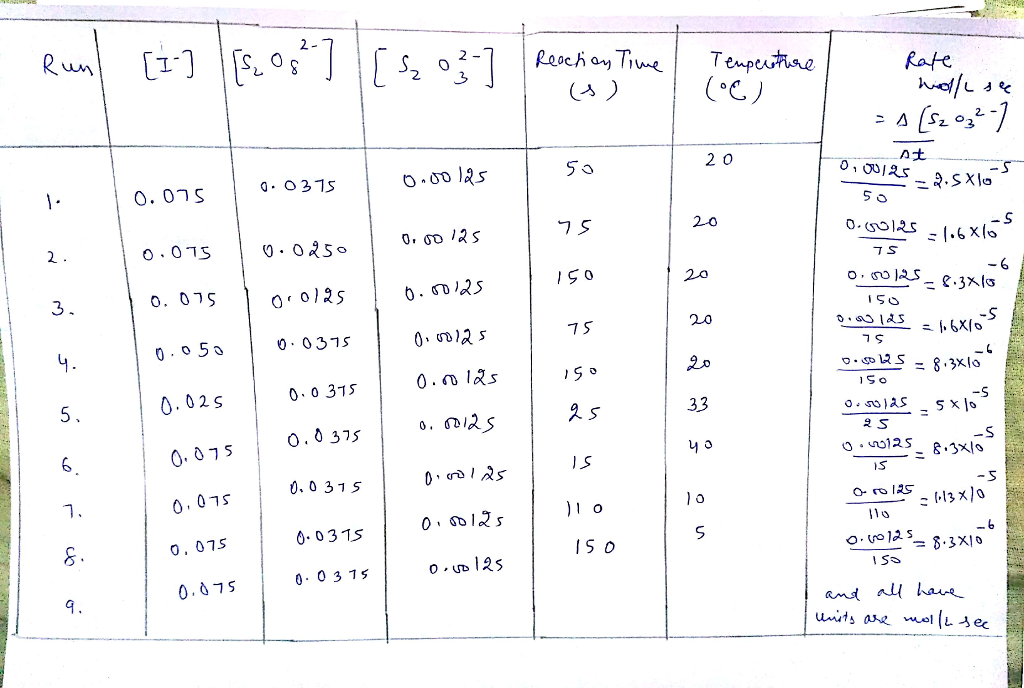 Run | [I-] | [S2O8 2-] | [S2O3 2-] | Reaction Time (s) | Temperature (°C) | Rate mol/L sec = Δ[S2O3 2-]/Δt
1. | 0.075 | 0.0375 | 0.00125 | 50 | 20 | 0.00125/50 = 2.5X10^-5
2. | 0.075 | 0.0250 | 0.00125 | 75 | 20 | 0.00125/75 = 1.6X10^-5
3. | 0.075 | 0.0125 | 0.00125 | 150 | 20 | 0.00125/150 = 8.3X10^-6
4. | 0.050 | 0.0375 | 0.00125 | 75 | 20 | 0.00125/75 = 1.6X10^-5
5. | 0.025 | 0.0375 | 0.00125 | 150 | 20 | 0.00125/150 = 8.3X10^-6
6. | 0.075 | 0.0375 | 0.00125 | 25 | 33 | 0.00125/25 = 5X10^-5
7. | 0.075 | 0.0375 | 0.00125 | 15 | 40 | 0.00125/15 = 8.3X10^-5
8. | 0.075 | 0.0375 | 0.00125 | 110 | 10 | 0.00125/110 = 1.13X10^-5
9. | 0.075 | 0.0375 | 0.00125 | 150 | 5 | 0.00125/150 = 8.3X10^-6
and all have
units are mol/L sec